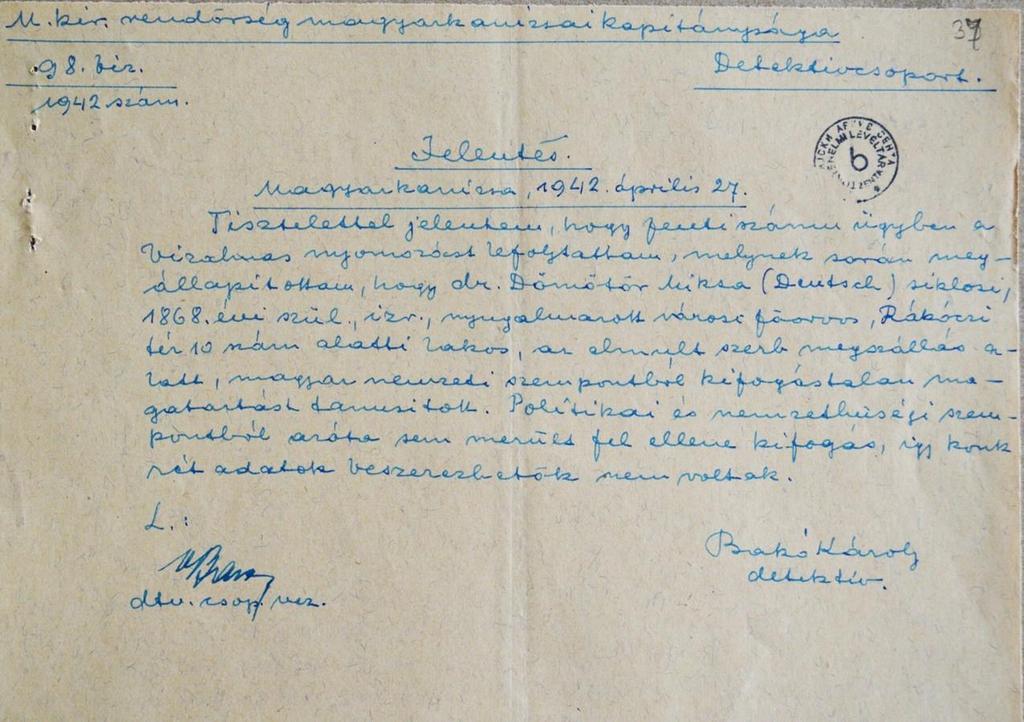 M. kir. rendőrség magyarkanizsai kapitánysága
37
98. biz.
1942 szám.
Detektivcsoport.
Jelentés.
Magyarkanizsa, 1942. április 27.
6
Tisztelettel jelentem, hogy fenti számu ügyben a
bizalmas nyomozást lefolytattam, melynek során meg-
állapitottam, hogy dr. Dömötör Miksa (Deutsch) siklósi,
1868. évi szül., izr., nyugalmazott városi főorvos, Rákóczi
tér 10 szám alatti lakos, az elmult szerb megszállás a-
latt, magyar nemzeti szempontból kifogástalan ma-
gatartást tanusitott. Politikai és nemzethűségi szem-
pontból azóta sem merült fel ellene kifogás, igy konk
rét adatok beszerezhetők nem voltak.
L.:
Bakó Károly
detektiv.
dtv. csop. vez.